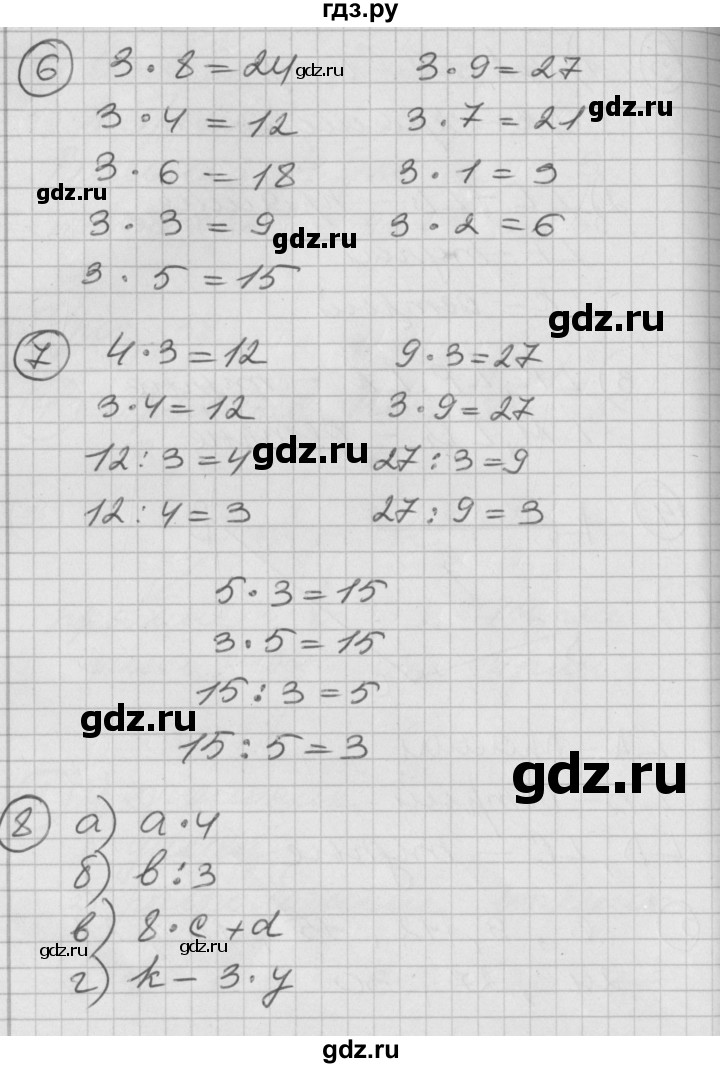 гдз.ру
6 3 · 8 = 24 gdz.ru 3 · 9 = 27
3 · 4 = 12 3 · 7 = 21 gdz.ru
gdz.ru 3 · 6 = 18 3 · 1 = 3
3 · 3 = 9 gdz.ru 3 · 2 = 6
3 · 5 = 15
gdz.ru
7 4 · 3 = 12 9 · 3 = 27
3 · 4 = 12 3 · 9 = 27
12 : 3 = 4 gdz.ru 27 : 3 = 9
12 : 4 = 3 27 : 9 = 3
5 · 3 = 15
3 · 5 = 15
15 : 3 = 5
gdz.ru
15 : 5 = 3
gdz.ru
8 а) a · 4
б) b : 3
в) 8 · c + d
gdz.ru gdz.ru
г) k - 3 · y
gdz.ru